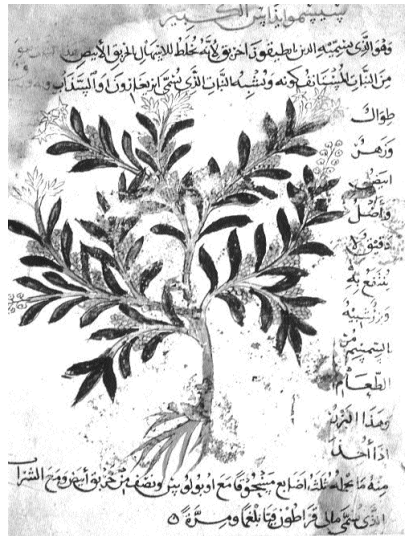 سيسمويذاس الكبير
وهو الذي يسميه الذين انطيقون اخربق لانه يخلط للاسهال بالخربق الابيض
من النبات المستانف كونه ويشبه النبات الذي يسمى ارنجارون او السذاب وله
طوال
وزهر
ابيض
واصل
دقيق لا
ينتفع به
وبزر شبيه
بالسمسم مر
الطعام
وهذا البزر
اذا اخذ
منه ما يحمله ثلث اصابع مسحوقا مع اوبولوس ونصف من خربق ابيض ومع الشراب
الذي يسمى مالي قراطون قيا بلغما ومرة